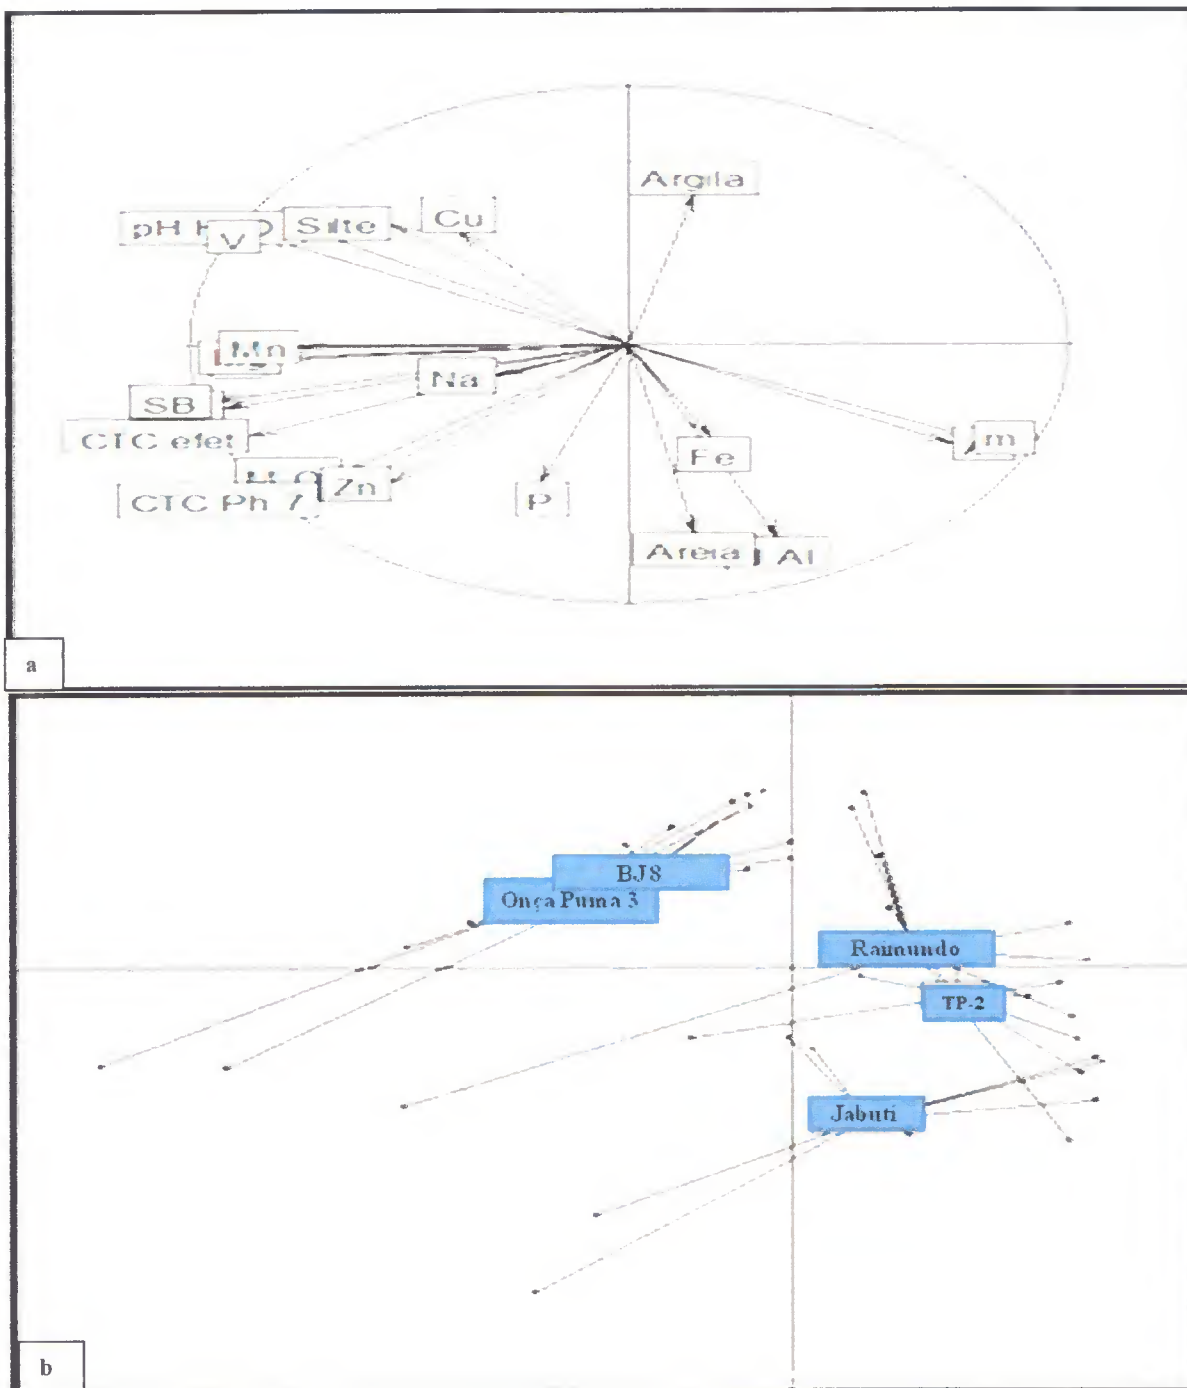 Argila
pH H O
V
Silte
Cu
Mn
Na
SB
CTC efet
Zn
CTC Ph 7
P
Fe
m
Areia
Al
a
BJ8
Onça Puma 3
Raimundo
TP-2
Jabuti
b